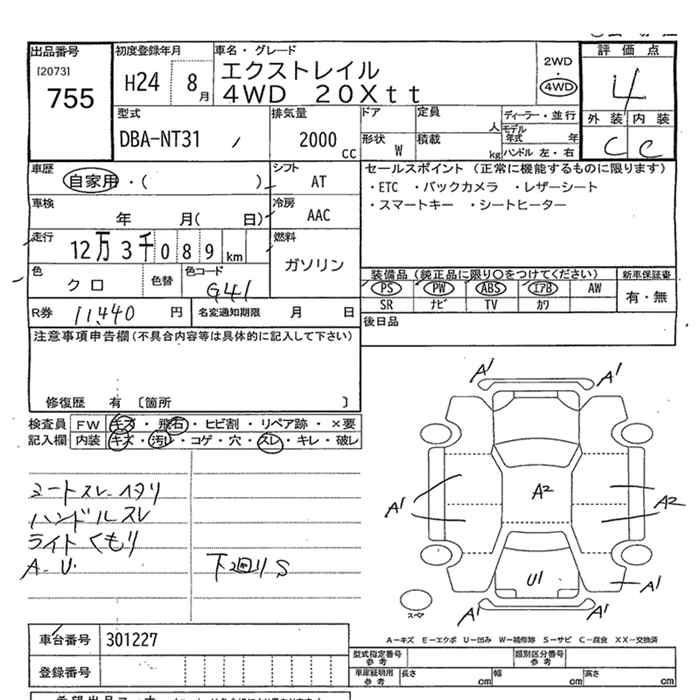 出品番号
[2073]
755
初度登録年月
H24 8月
車名・グレード
エクストレイル
4WD 20Xtt
2WD
4WD
評価点
4
外装 内装
C C
型式
DBA-NT31
排気量
2000cc
ドア
定員
人
形状
W
積載
kg
ディーラー・並行
モデル年式 年
ハンドル 左・右
車歴
自家用・( )
シフト
AT
セールスポイント (正常に機能するものに限ります)
・ETC ・バックカメラ ・レザーシート
・スマートキー ・シートヒーター
車検
年 月( 日)
冷房
AAC
走行
12万3千089km
燃料
ガソリン
色
クロ
色替
色コード
G41
装備品 (純正品に限り○をつけてください)
新車保証書
PS PW ABS エアB AW
SR ナビ TV カワ
有・無
R券 11,440円
名変通知期限 月 日
後日品
注意事項申告欄(不具合内容等は具体的に記入して下さい)
修復歴 有 〔箇所 〕
検査員記入欄
FW キズ・飛石・ヒビ割・リペア跡・×要
内装 キズ・汚レ・コゲ・穴・スレ・キレ・破レ
シートスレ・ヘタリ
ハンドルスレ
ライトくもり
A・U・
下回りS
A1 A1
A1 A2 A2
U1 A1
A1
スペア
A−キズ E−エクボ U−凹み W−補修跡 S−サビ C−腐食 XX−交換済
車台番号 301227
登録番号
型式指定番号 参考
類別区分番号 参考
車庫証明用 参考
長さ cm
幅 cm
高さ cm